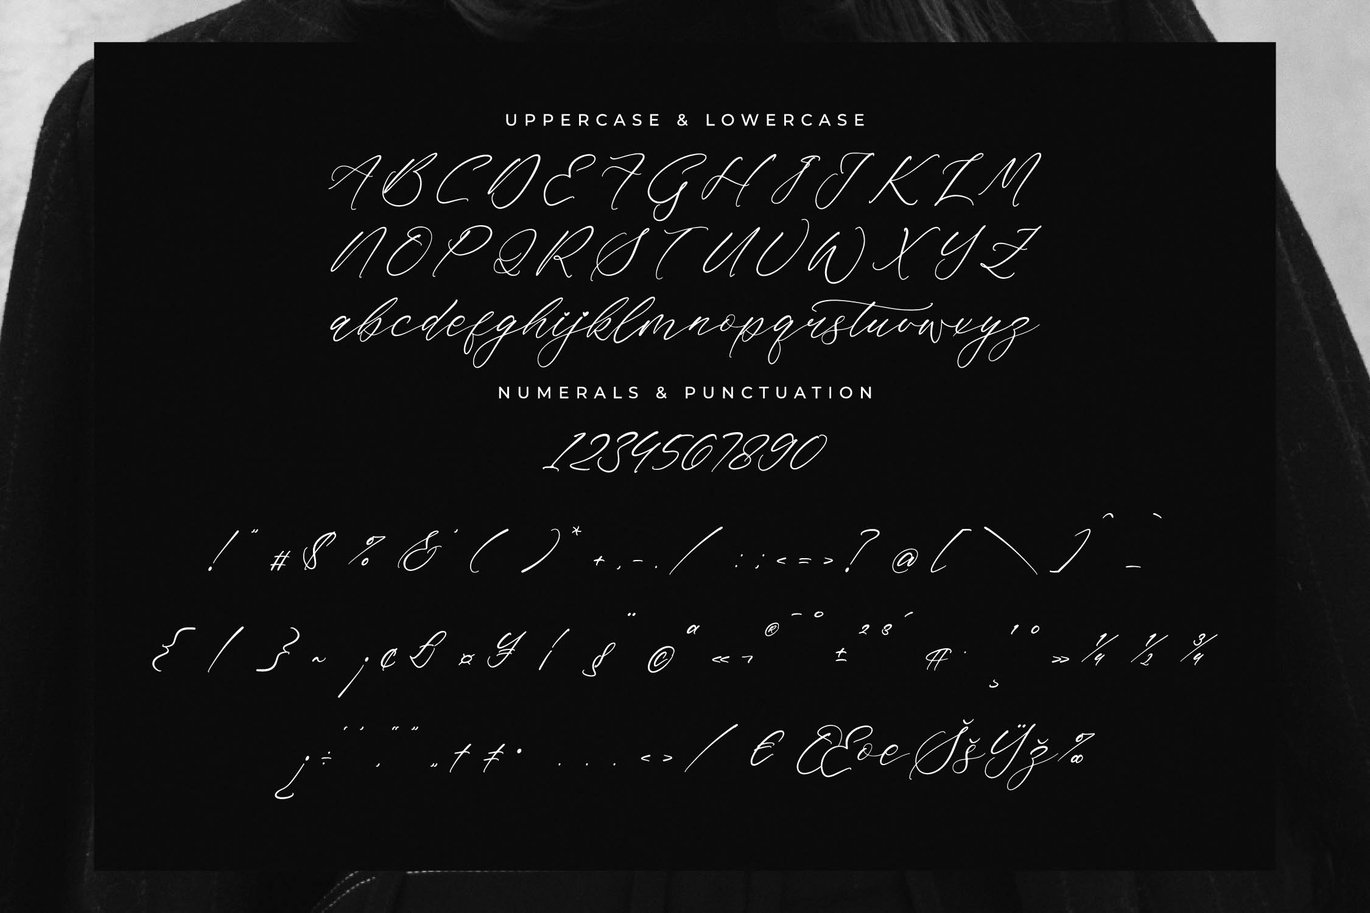 UPPERCASE & LOWERCASE
ABCDEFGHIJKLM
NOPQRSTUVWXYZ
abcdefghijklmnopqrstuvwxyz
NUMERALS & PUNCTUATION
1234567890
! " # $ % & ' ( ) * + , - . / : ; < = > ? @ [ \ ] ^ _ `
{ | } ~ ¡ ¢ £ ¤ ¥ ¦ § ¨ © ª « ¬ ® ¯ ° ± ² ³ ´ ¶ · ¸ ¹ º » ¼ ½ ¾
¿ ÷ ‘ ’ ‚ “ ” „ † ‡ • . . . ‹ › ⁄ € Œ œ Š š Ÿ ž ‰